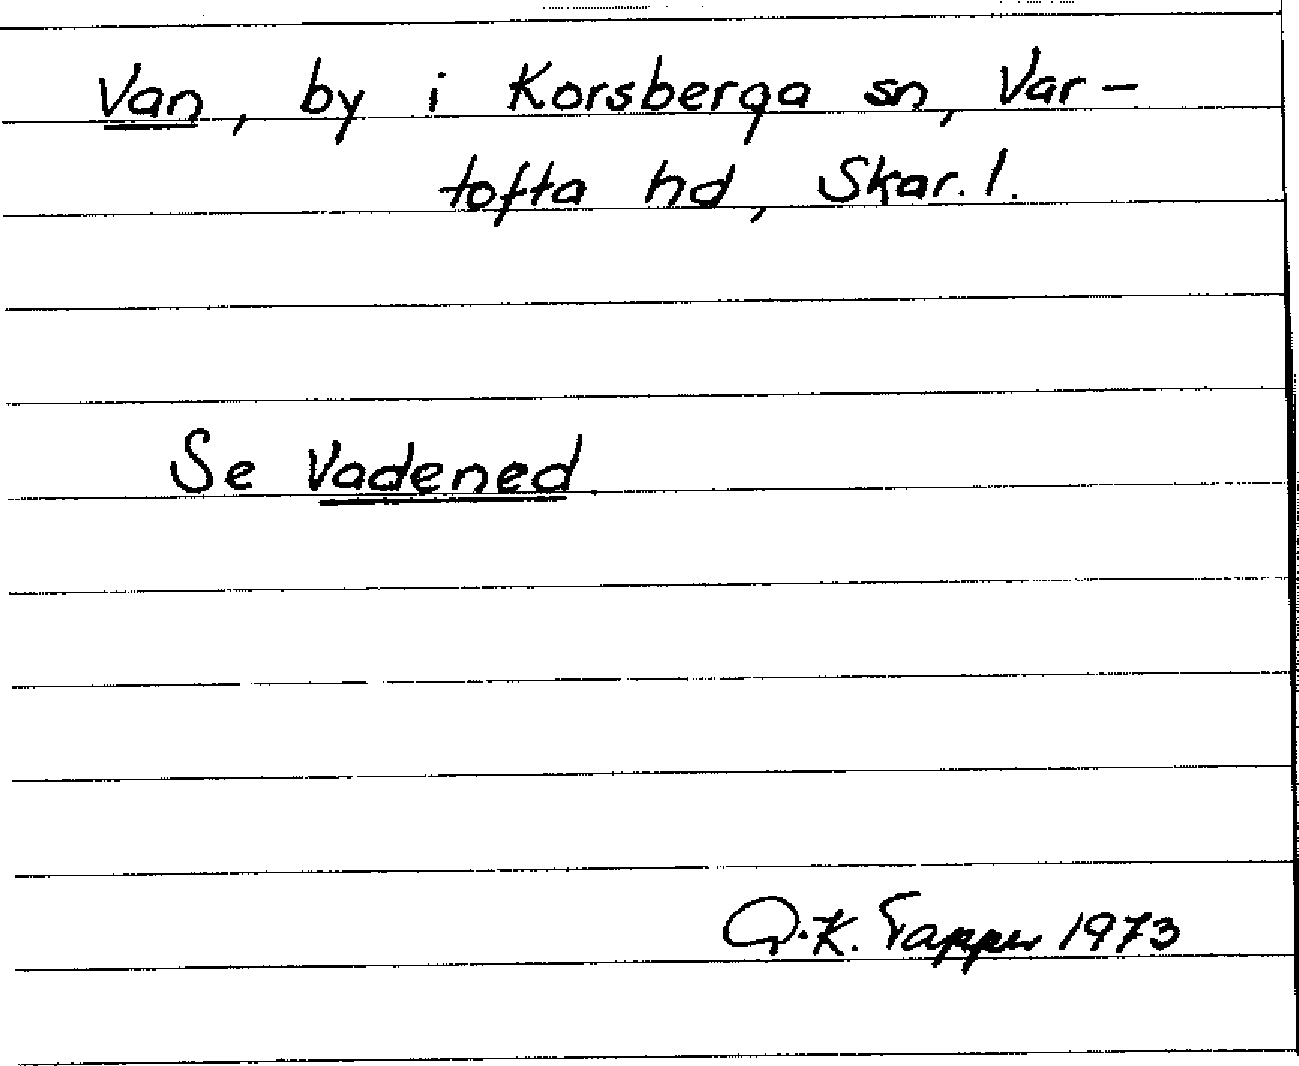 Van, by i Korsberga sn, Var-
tofta hd, Skar. l.
Se Vadened
G.K. Tapper 1973